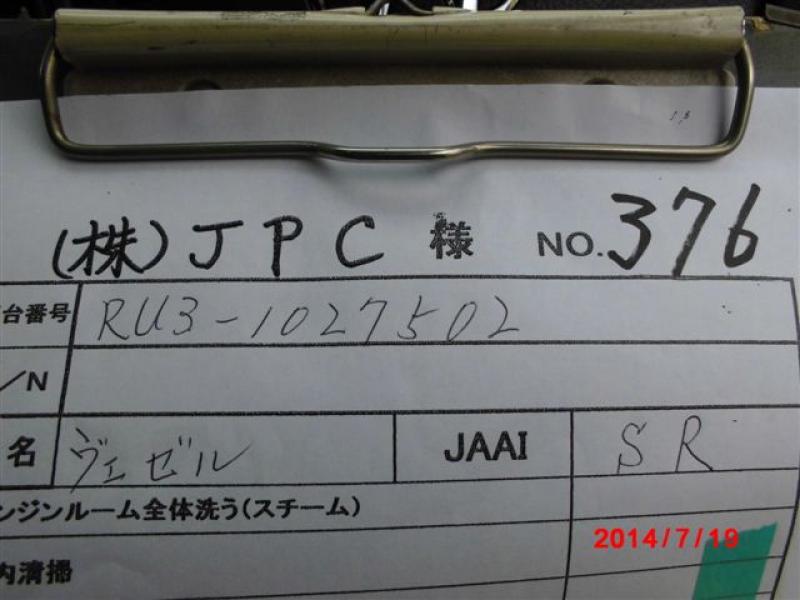 (株)JPC 様 NO.376
台番号 RU3-1027502
/N
名 ヴェゼル JAAI SR
ンジンルーム全体洗う(スチーム)
内清掃
2014/7/19